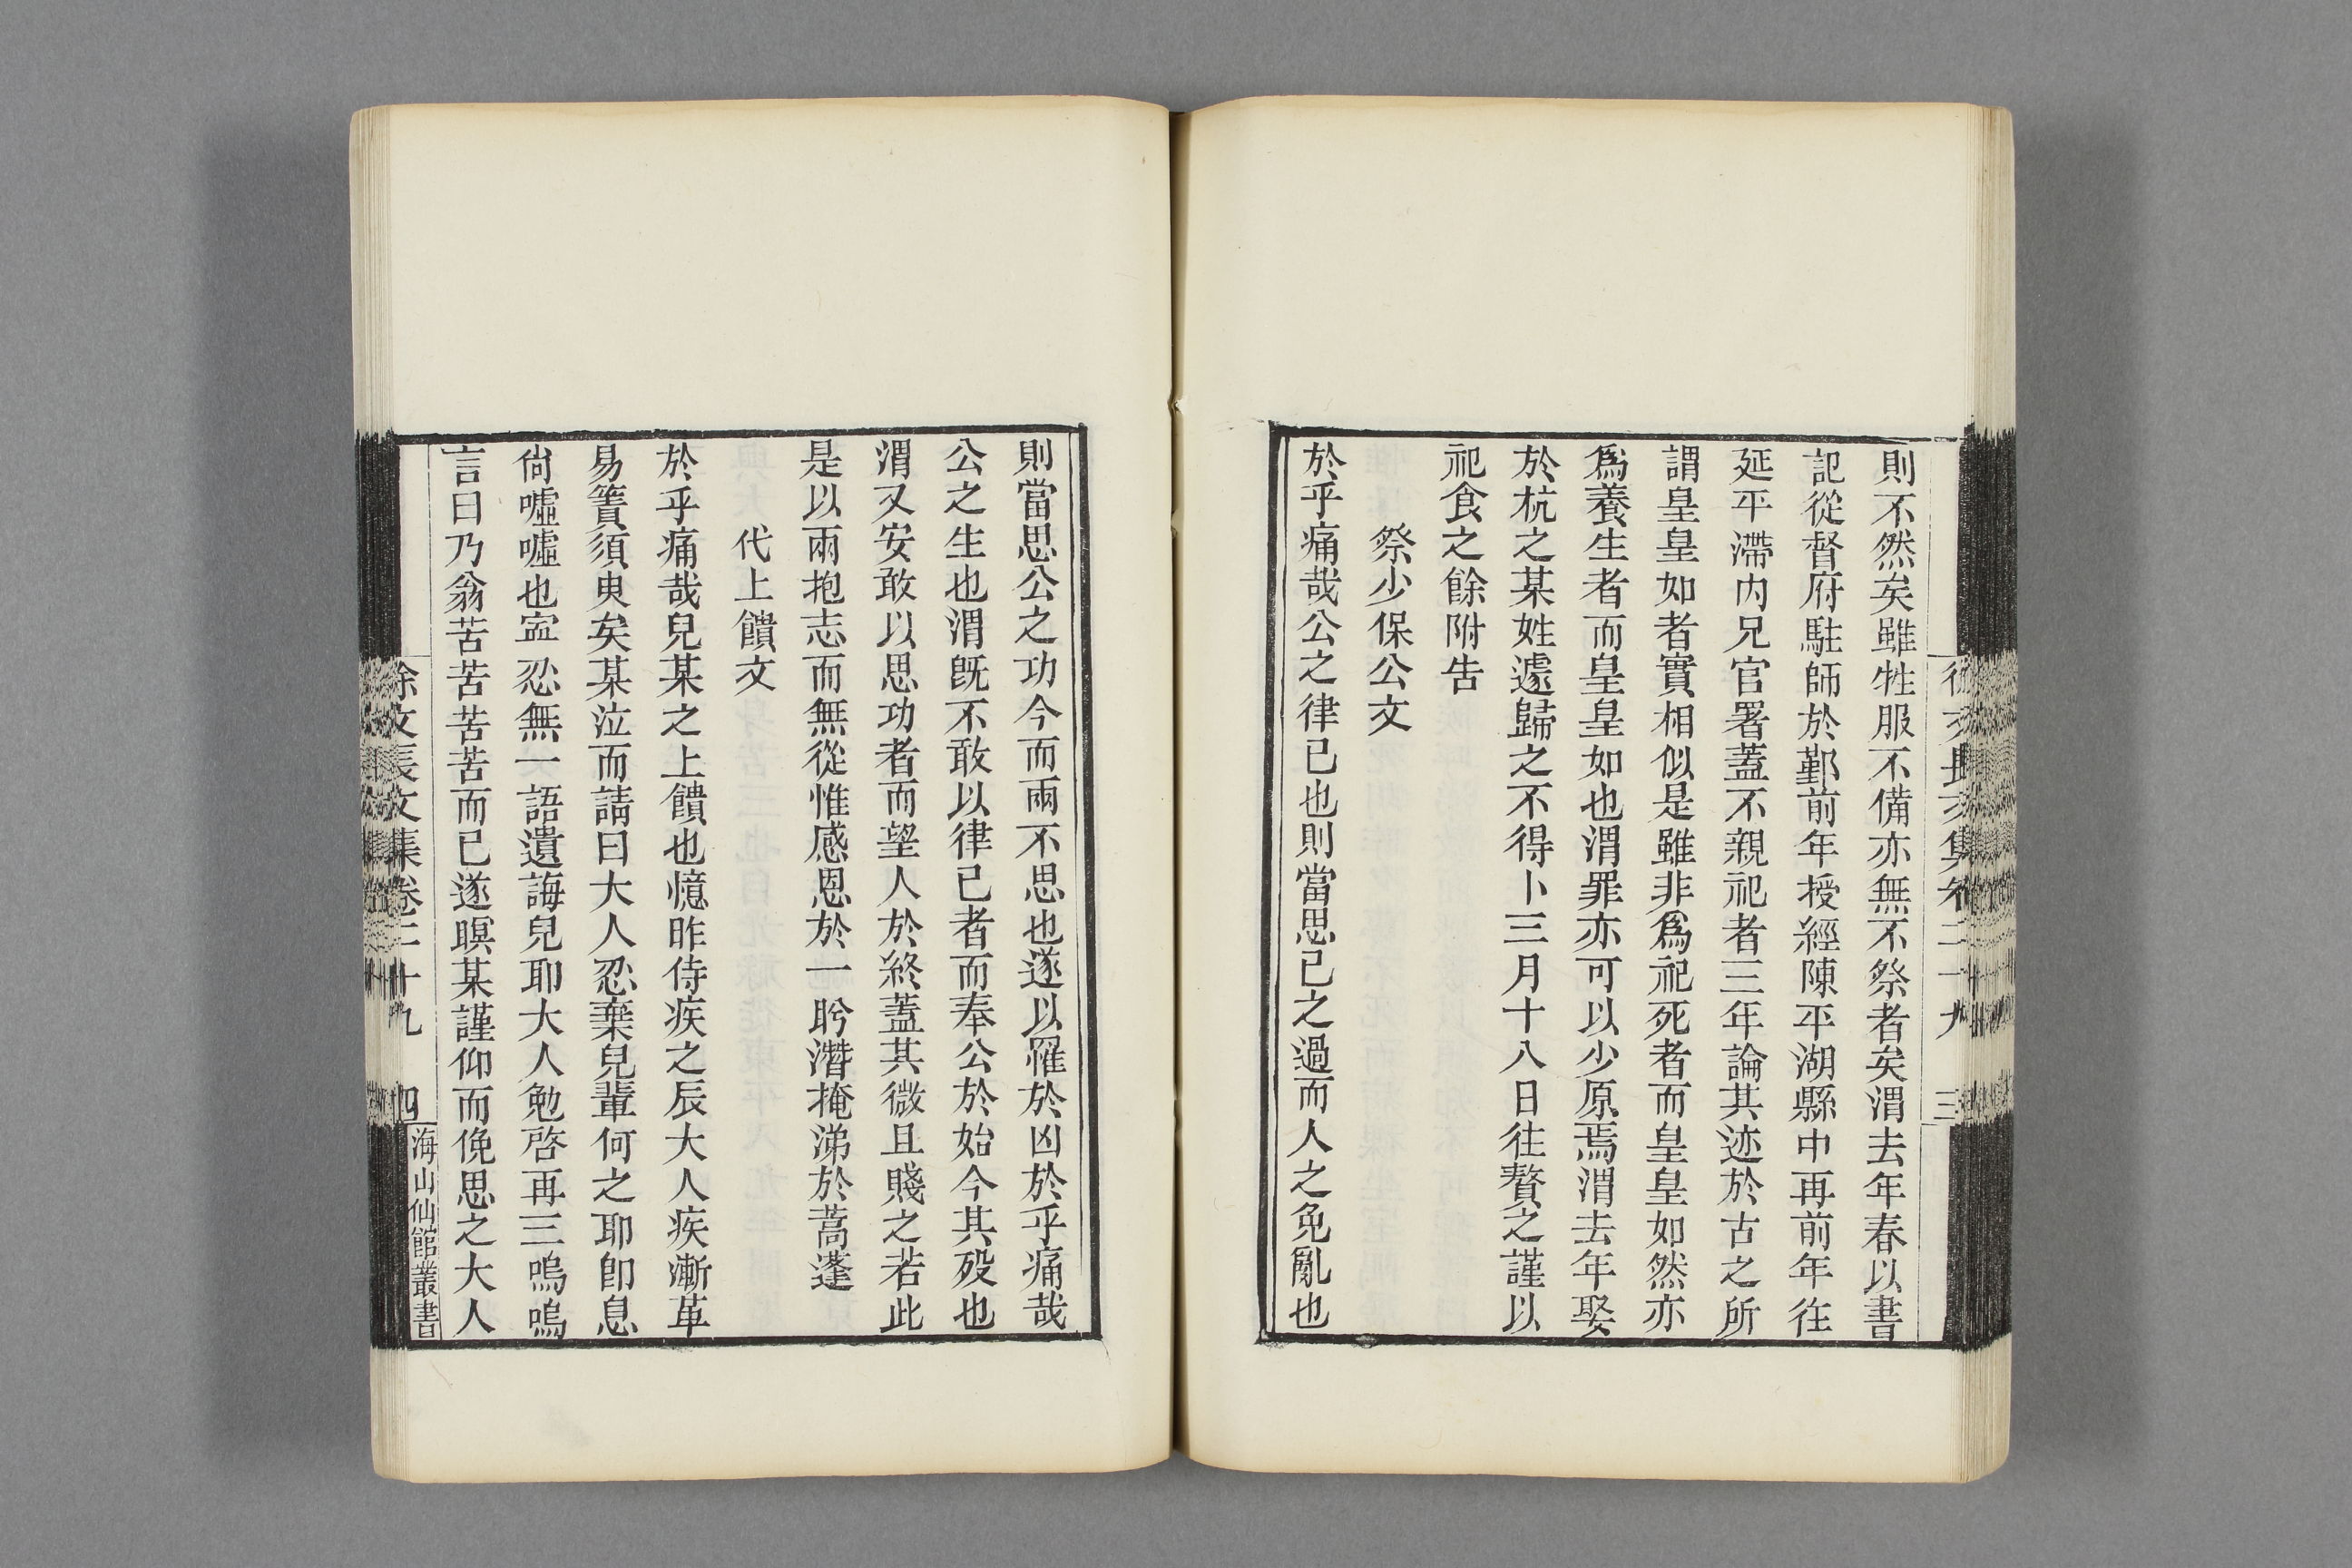 則不然矣雖牲服不備亦無不祭者矣渭去年春以書
記從督府駐師於鄞前年授經陳平湖縣中再前年徃
延平滯内兄官署蓋不親祀者三年論其迹於古之所
謂皇皇如者實相似是雖非爲祀死者而皇皇如然亦
爲養生者而皇皇如也渭罪亦可以少原焉渭去年娶
於杭之某姓遽歸之不得卜三月十八日往贅之謹以
祀食之餘附告
祭少保公文
於乎痛哉公之律已也則當思已之過而人之免亂也
則當思公之功今而兩不思也遂以罹於凶於乎痛哉
公之生也渭旣不敢以律已者而奉公於始今其殁也
渭又安敢以思功者而望人於終蓋其微且賤之若此
是以兩抱志而無從惟感恩於一盻濳掩涕於蒿蓬
代上饋文
於乎痛哉兒某之上饋也憶昨侍疾之辰大人疾漸革
易簀須臾矣某泣而請曰大人忍棄兒輩何之耶卽息
尙噓噓也寍忍無一語遺誨兒耶大人勉啓再三嗚嗚
言曰乃翁苦苦苦苦而已遂瞑某謹仰而俛思之大人
徐文長文集卷二十九 三
徐文長文集卷二十九 四 海山仙館叢書